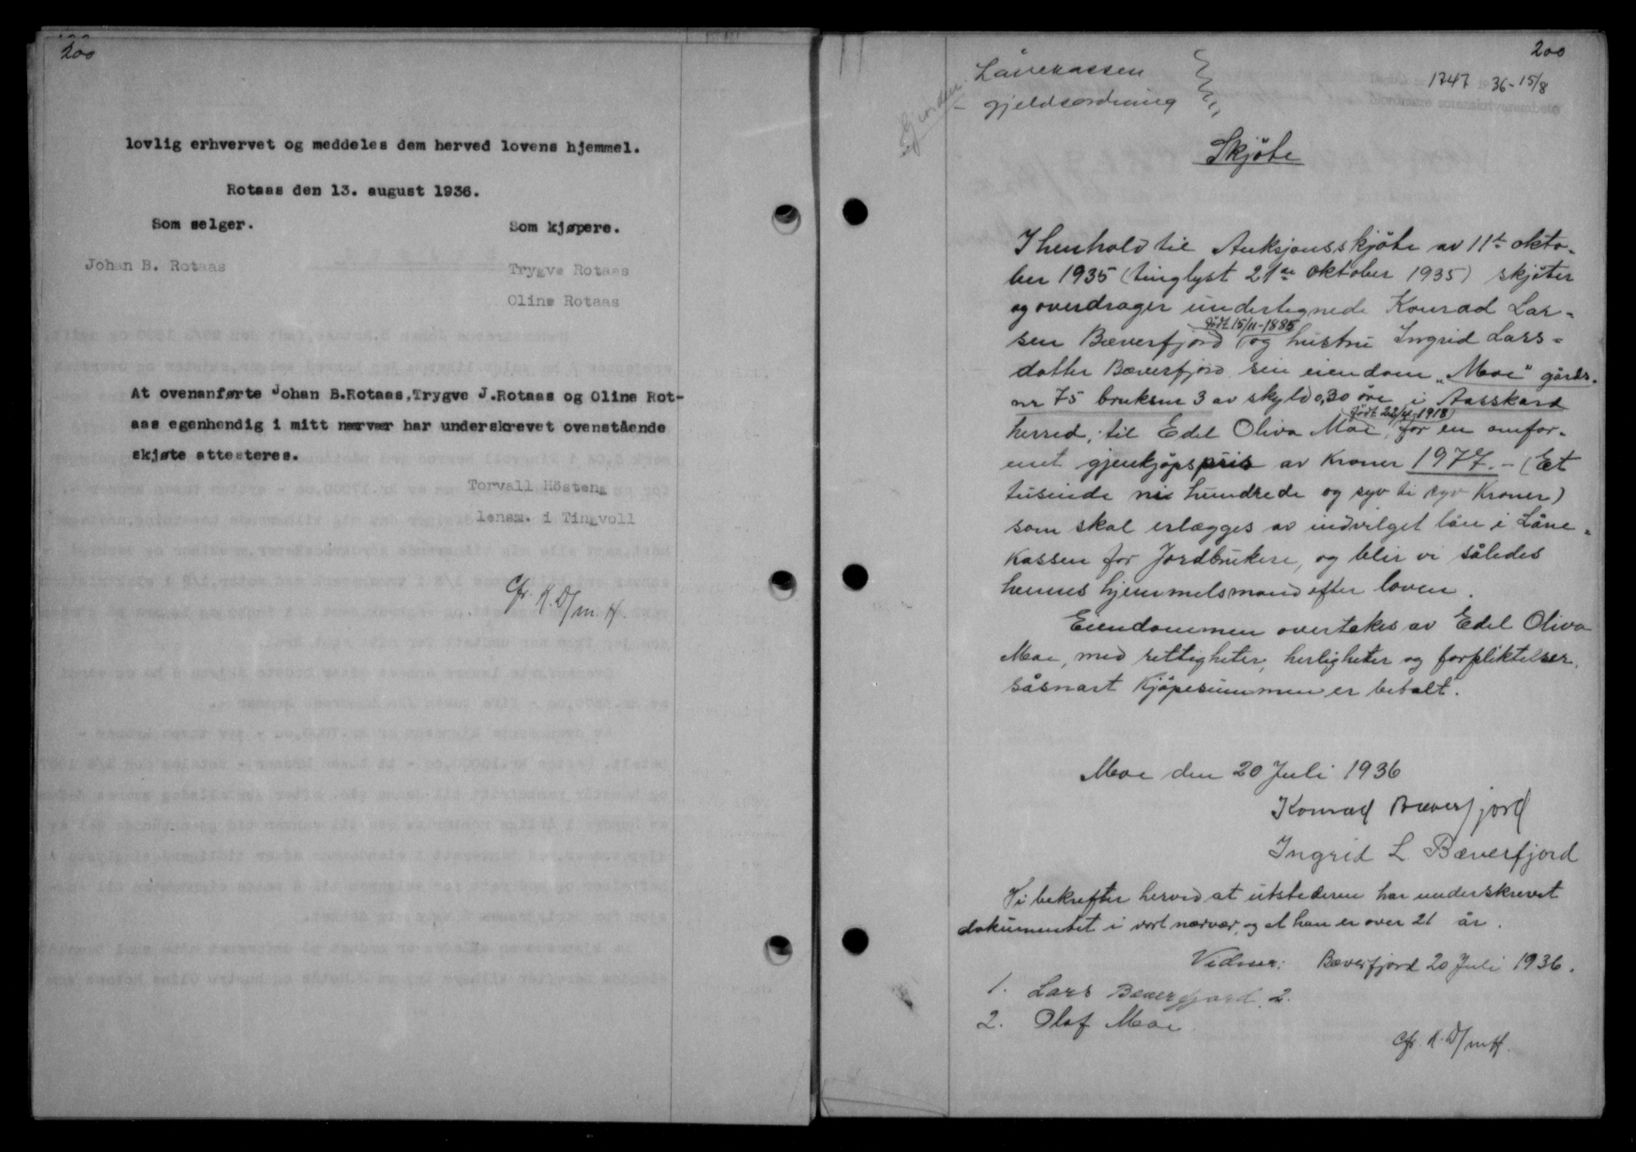 200
lovlig erhvervet og meddeles dem herved lovens hjemmel.
Rotaas den 13. august 1936.
Som selger.
Som kjøpere.
Johan B. Rotaas
Trygve Rotaas
Oline Rotaas
At ovenanførte Johan B.Rotaas,Trygve J.Rotaas og Oline Rot-
aas egenhendig i mitt nærvær har underskrevet ovenstående
skjøte attesteres.
Torvall Hösteng
lensm. i Tingvoll
Cfr. K.D/m.H.
200
1747 36-15/8
Lånekassen
gjeldsordning
Skjöte
I henhold til Auksjonsskjöte av 11te okto-
ber 1935 (tinglyst 21de oktober 1935) skjöter
og overdrager undertegnede Konrad Lar-
født 15/11-1885
sen Bæverfjord og hustru Ingrid Lars-
datter Bæverfjord sin eiendom „Moe" gårds-
nr 75 bruksnr 3 av skyld 0,30 öre i Aasskard
født 22/4-1918
herred, til Edel Oliva Moe, for en omfor-
enet gjenkjöpspris av Kroner 1977.- (Et
tusinde ni hundrede og syv ti syv Kroner)
som skal erlægges av indvilget lån i Låne-
kassen for Jordbrukere, og blir vi således
hennes hjemmelsmand efter loven.
Eiendommen overtakes av Edel Oliva
Moe, med rettigheter, herligheter og forpliktelser,
såsnart Kjöpesummen er betalt.
Moe den 20 Juli 1936
Konrad Bæverfjord
Ingrid L Bæverfjord
Vi bekrefter herved at utstederen har underskrevet
dokumentet i vort nærvær, og at han er over 21 år.
Vidner: Bæverfjord 20 Juli 1936.
1. Lars Bæverfjord. 2.
2. Olaf Moe
Cfr. K.D/mH.